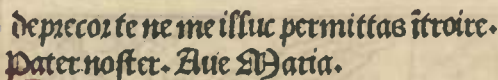 deprecor te ne me illuc permittas ĩtroire.
Pater noster. Aue Maria.